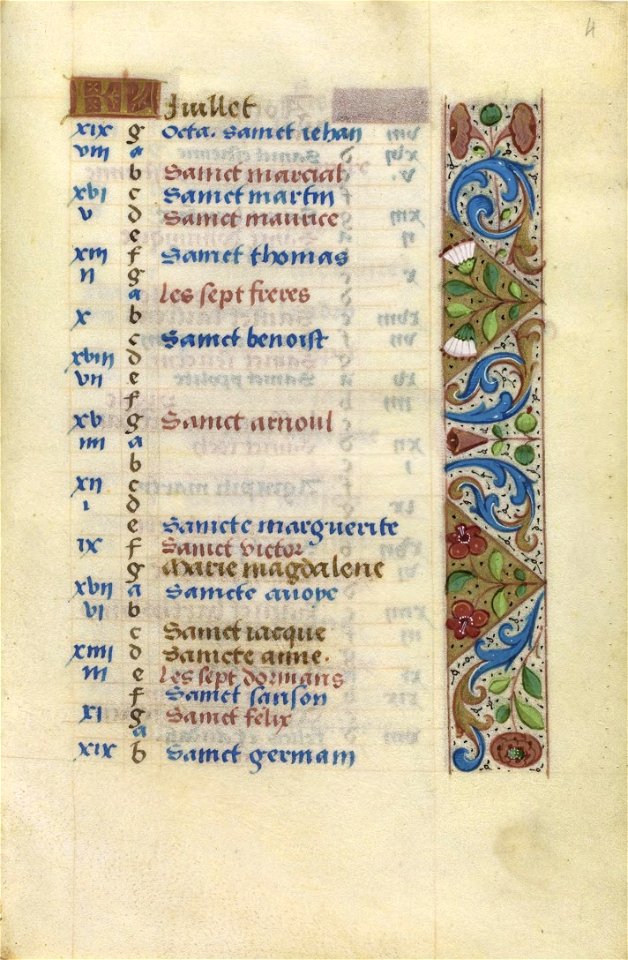 4
KL Juillet
xix g Octa. Sainct iehan
viii a
b Sainct marcial
xvi c Sainct martin
v d Sainct maurice
e
xiii f Sainct thomas
ii g
a Les sept freres
x b
c Sainct benoist
xviii d
vii e
f
xv g Sainct arnoul
iiii a
b
xii c
i d
e Saincte marguerite
ix f Sainct victor
g Marie magdalene
xvii a Saincte
vi b
c Sainct iacque
xiiii d Saincte anne.
iii e Les sept dormans
f Sainct sanson
xi g Sainct felix
a
xix b Sainct germain